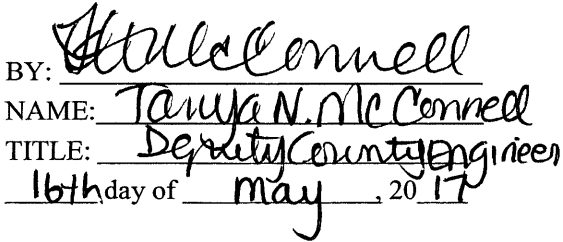 BY: McConnell
NAME: Tanya N. McConnell
TITLE: Deputy County Engineer
16th day of May, 2017